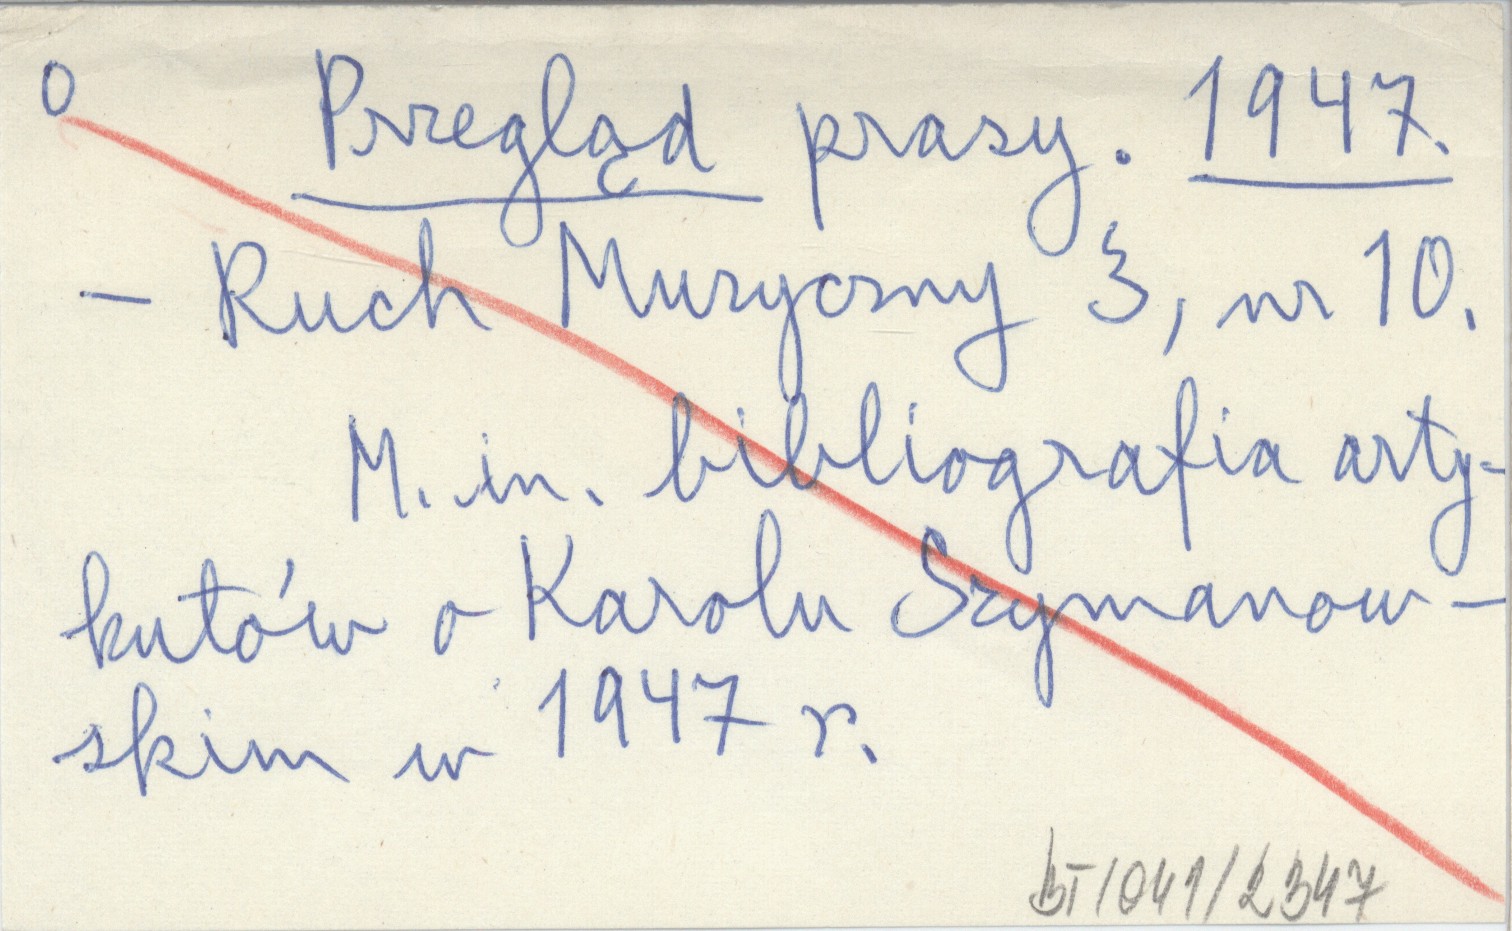 0 Przegląd prasy. 1947.
– Ruch Muzyczny 3, nr 10.
M. in. bibliografia arty-
kułów o Karolu Szymanow-
skim w 1947 r.
BT/041/2347